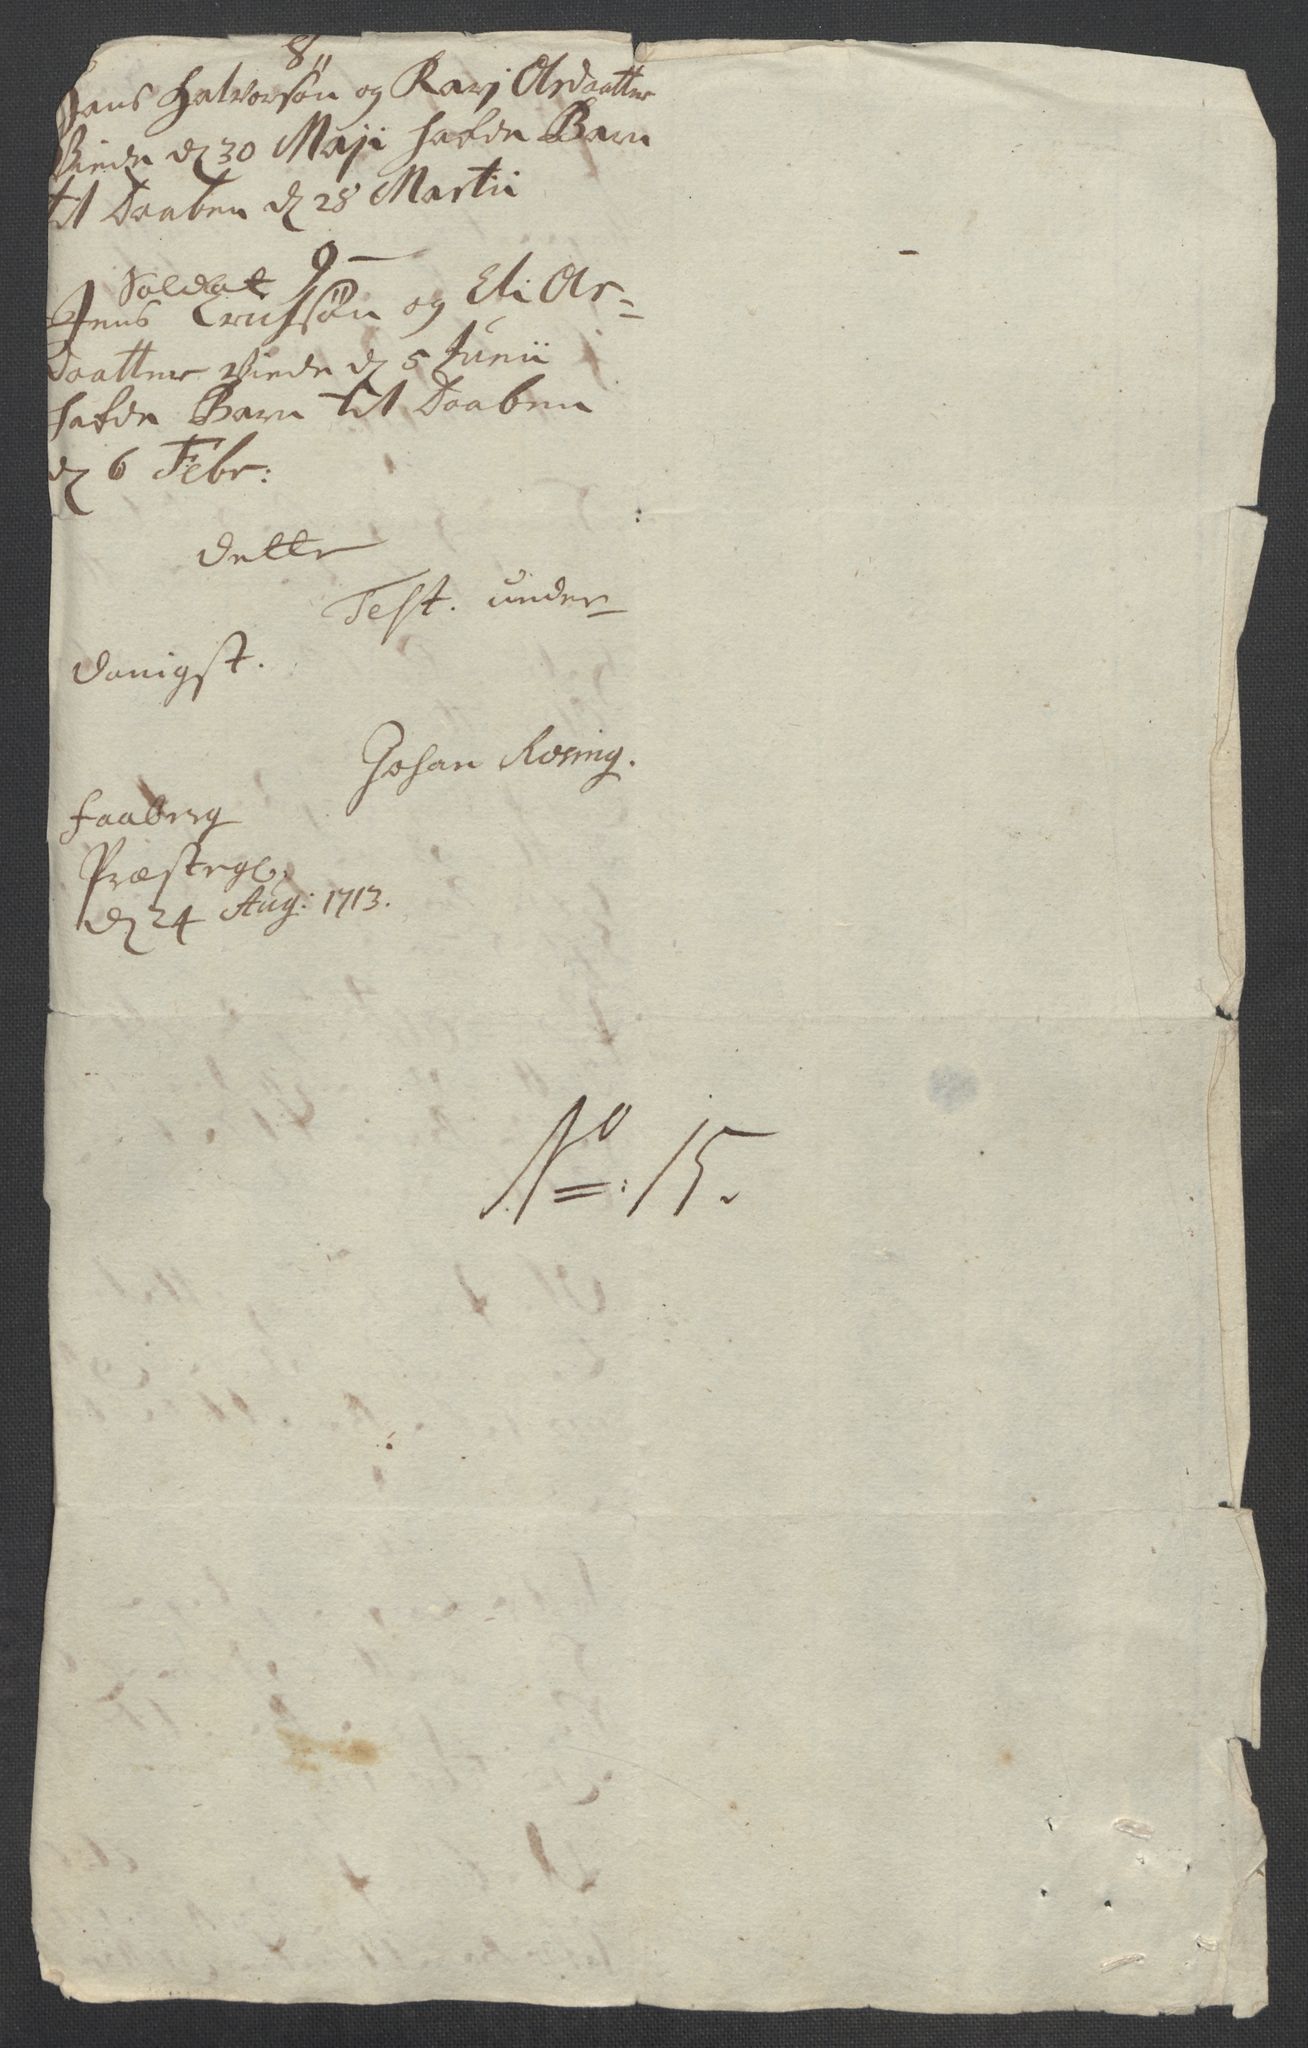 8
Hans Halvorsøn og Karj Olsdaatter
Viede d 30 Maji hafde Barn
til Daaben d 28 Martii
9
Soldat
Jens Erichsøn og Eli Ols=
Daatter Viede d 5 Junii
hafde Barn til Daaben
d 6 Febr:
Dette
Test. under
danigst.
Johan Rosing.
Faaberg
Præstegl.
d 24 Aug: 1713.
No: 15.